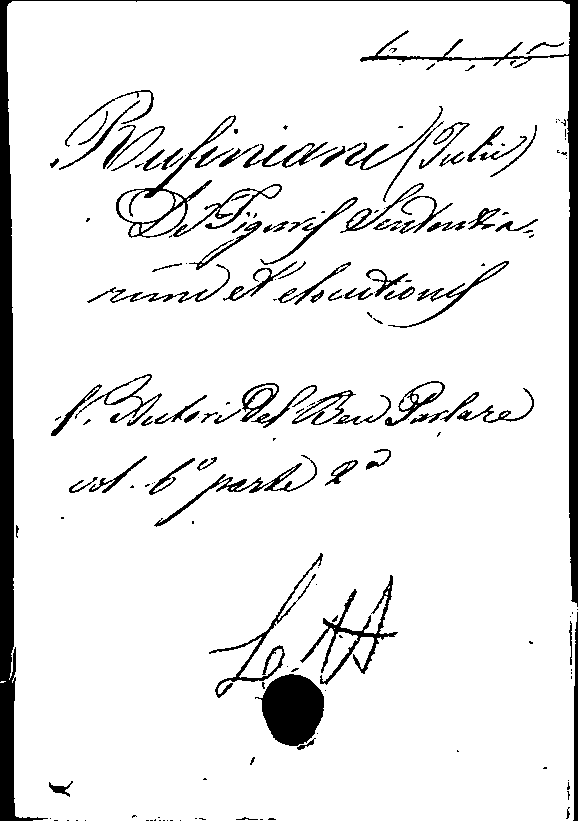 6. 1. 15
Rufiniani (Julii)
De Figuris Sententia-
rum et elocutionis
V. Autori Del Ben Parlare
vol. 6º parte 2ª